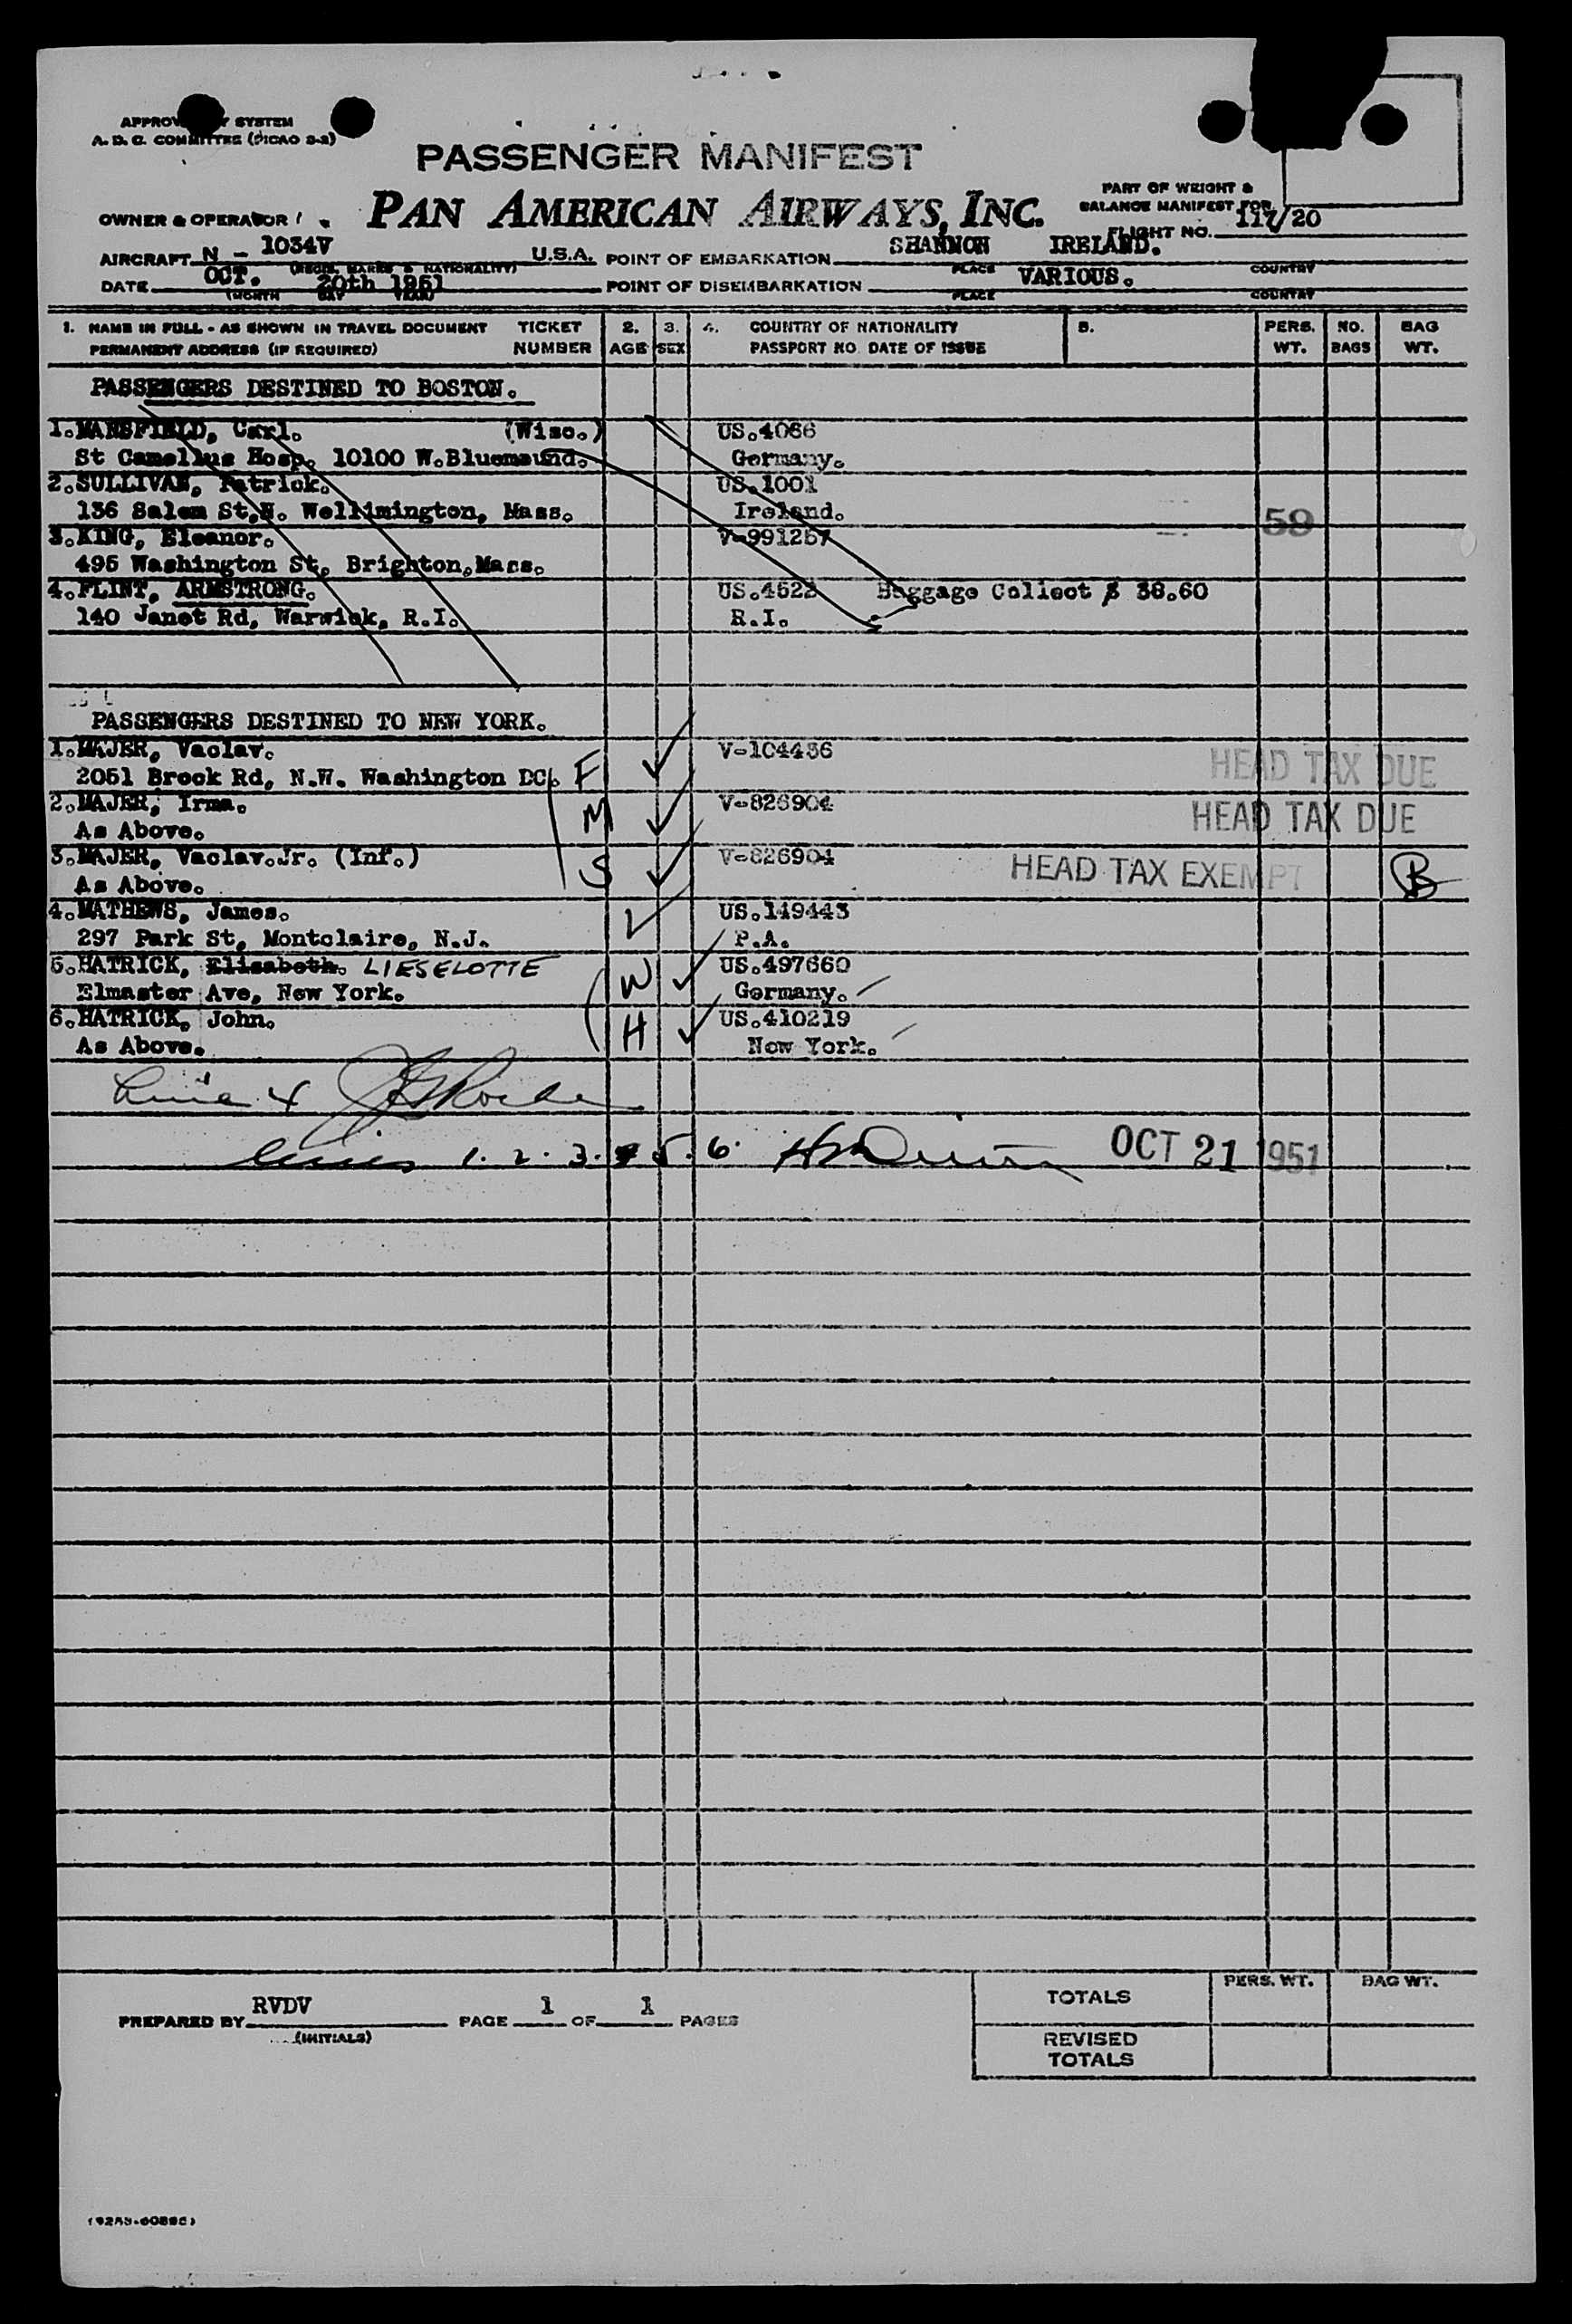 APPROV Y SYSTEM
A. D. C. COMMITTEE (PICAO S-2)
PASSENGER MANIFEST
OWNER & OPERATOR PAN AMERICAN AIRWAYS, INC.
PART OF WEIGHT &
BALANCE MANIFEST FOR
FLIGHT NO. 117/20
AIRCRAFT N - 1034V U.S.A. POINT OF EMBARKATION SHANNON IRELAND.
(REGIS. MARKS & NATIONALITY) PLACE COUNTRY
DATE OCT. 20th 1951 POINT OF DISEMBARKATION VARIOUS.
(MONTH DAY YEAR) PLACE COUNTRY
1. NAME IN FULL - AS SHOWN IN TRAVEL DOCUMENT TICKET 2. 3. 4. COUNTRY OF NATIONALITY 5. PERS. NO. BAG
PERMANENT ADDRESS (IF REQUIRED) NUMBER AGE SEX PASSPORT NO. DATE OF ISSUE WT. BAGS WT.
PASSENGERS DESTINED TO BOSTON.
1.MANSFIELD, Carl. (Wisc.) US.4066
St Camellus Hosp. 10100 W.Bluemound. Germany.
2.SULLIVAN, Patrick. US.1001
136 Salem St,N. Wellimington, Mass. Ireland. 58
3.KING, Eleanor. V-991257
495 Washington St, Brighton,Mass.
4.FLINT, ARMSTRONG. US.4522 Baggage Collect $ 38.60
140 Janet Rd, Warwick, R.I. R.I.
PASSENGERS DESTINED TO NEW YORK.
1.MAJER, Vaclav. V-104436
2051 Brook Rd, N.W. Washington DC. F HEAD TAX DUE
2.MAJER, Irma. V-826904
As Above. M HEAD TAX DUE
3.MAJER, Vaclav.Jr. (Inf.) V-826904
As Above. S HEAD TAX EXEMPT B
4.MATHEWS, James. US.149443
297 Park St, Montclaire, N.J. P.A.
5.HATRICK, Elisabeth. LIESELOTTE US.497660
Elmaster Ave, New York. W Germany.
6.HATRICK, John. US.410219
As Above. H New York.
Line 4
Lines 1. 2. 3. 5. 6. OCT 21 1951
PREPARED BY RVDV PAGE 1 OF 1 PAGES
(INITIALS)
PERS. WT. BAG WT.
TOTALS
REVISED
TOTALS